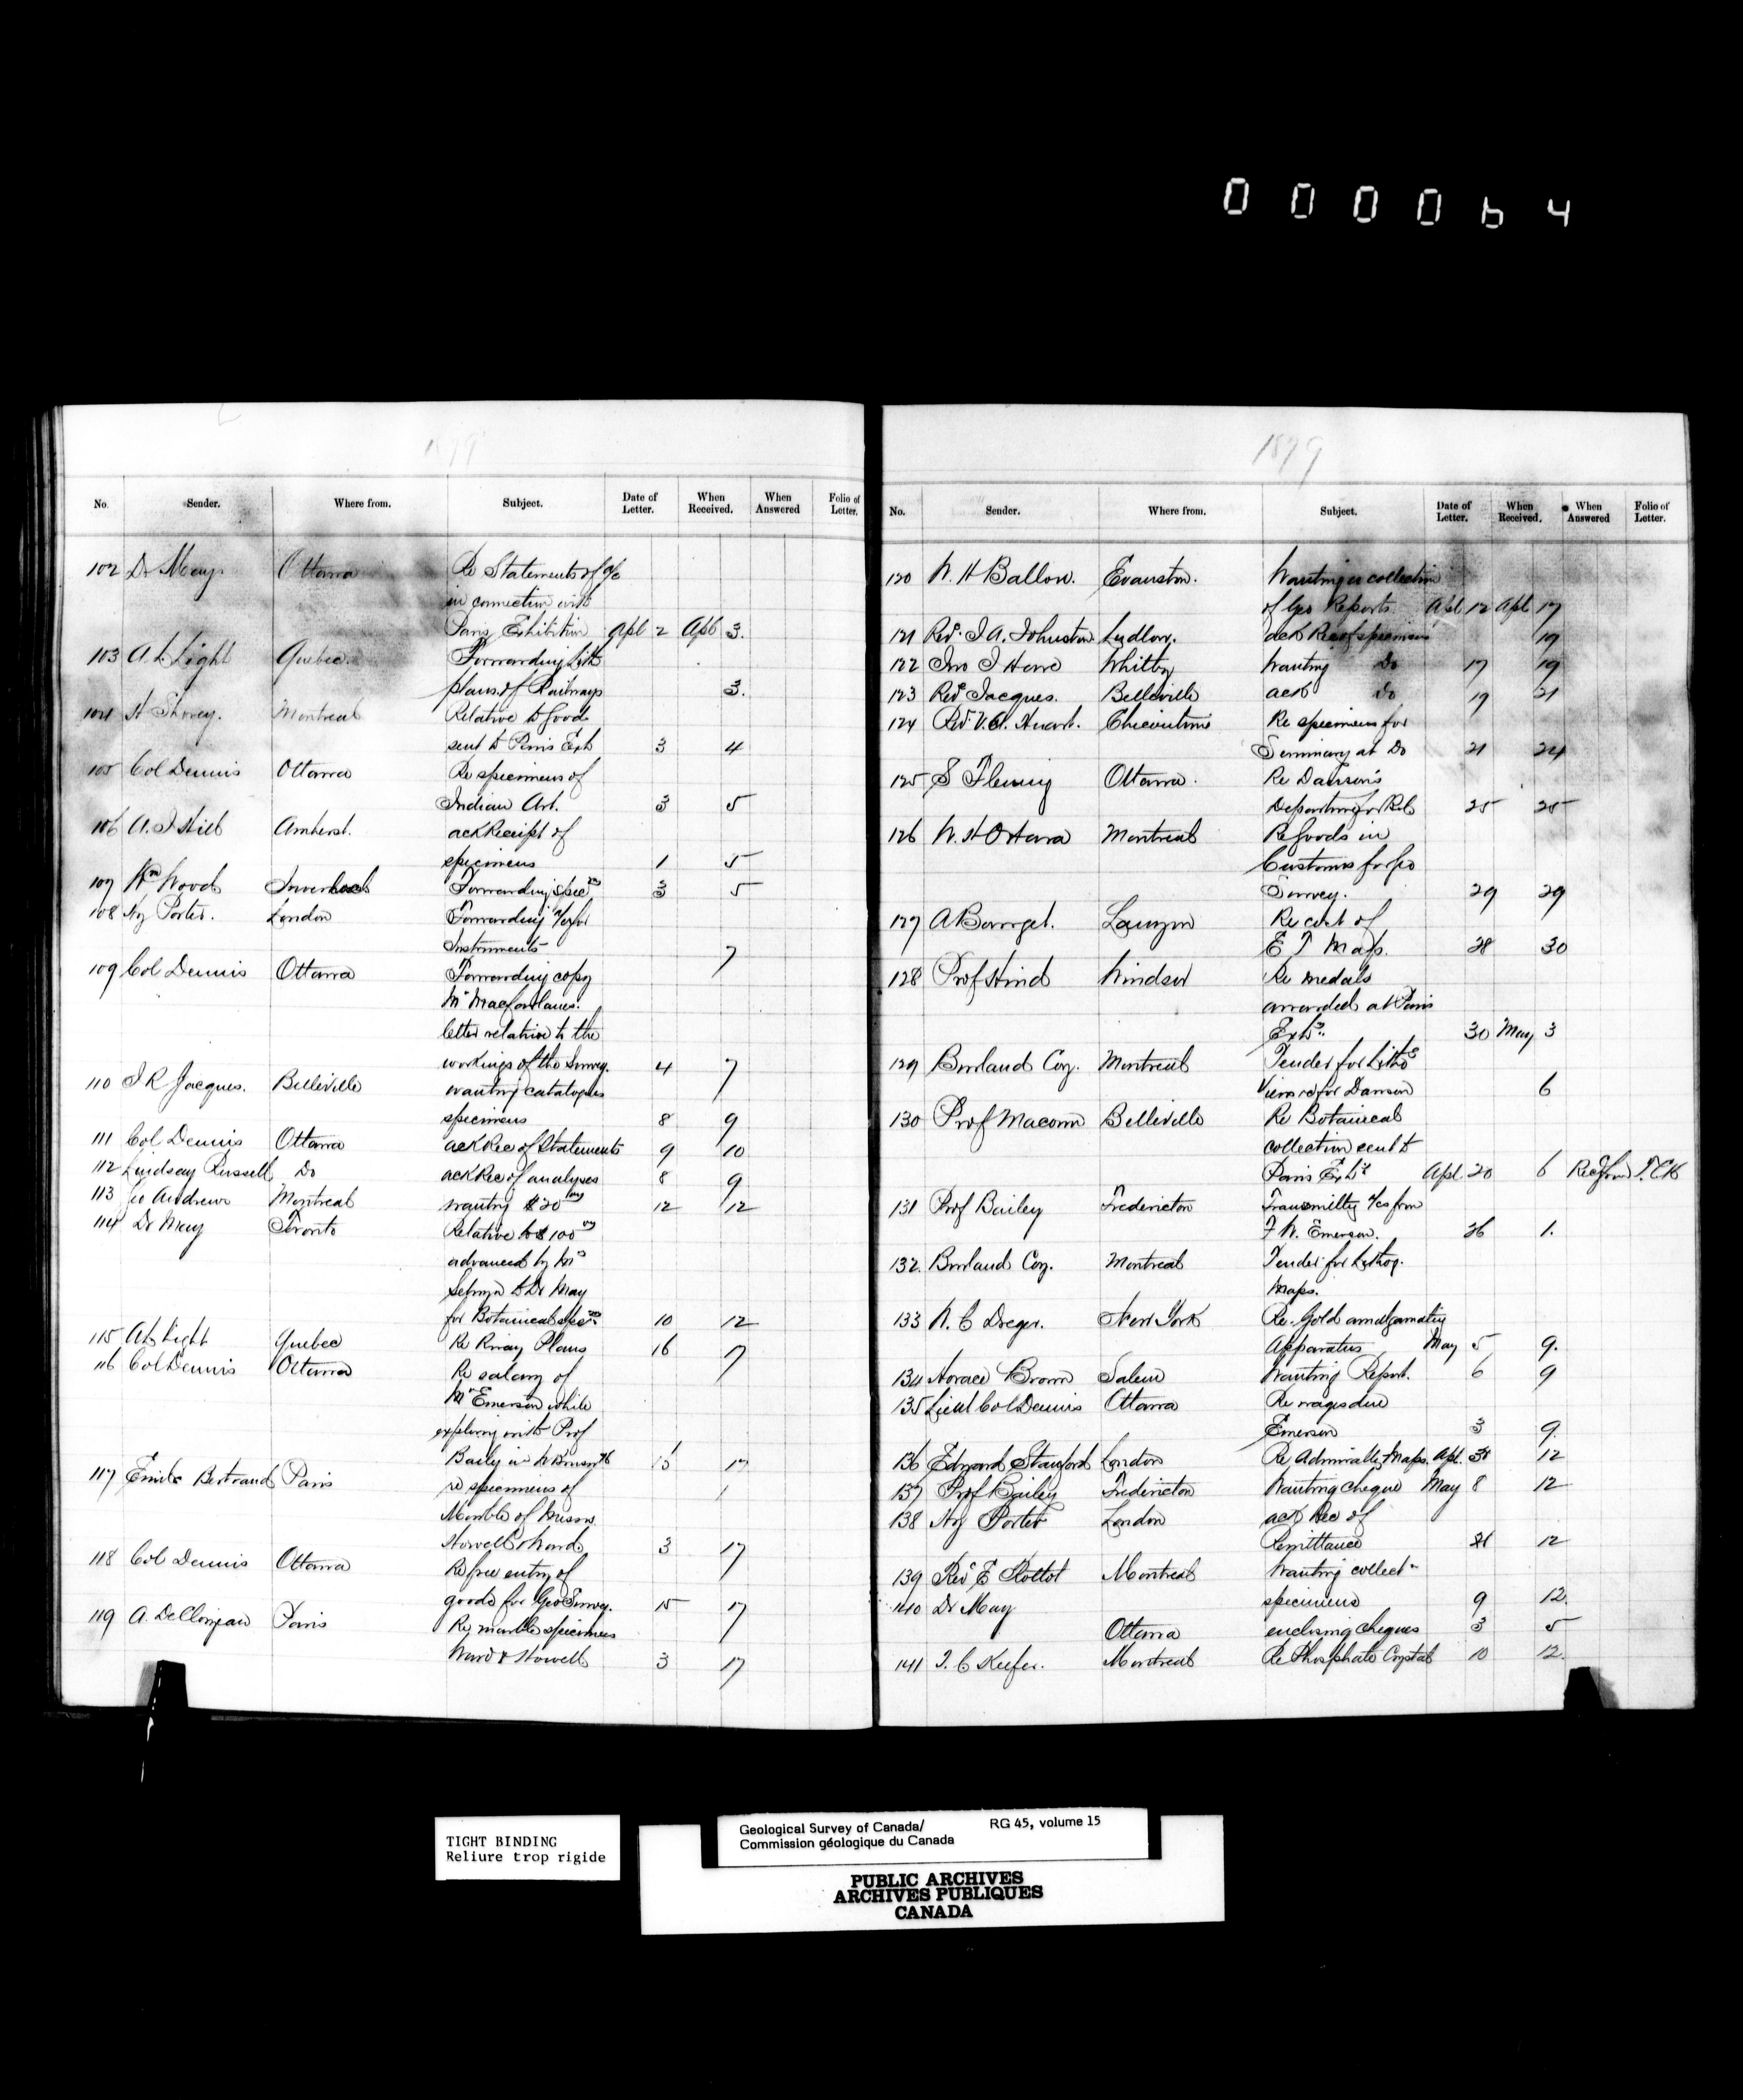 000064
1879
No. Sender. Where from. Subject. Date of Letter. When Received. When Answered Folio of Letter.
102 Dr May Ottawa Re Statements of a/c
in connection with
Paris Exhibition Apl 2 Apl 3.
103 A. L. Light Quebec Forwarding Lith
plans of Railways 3.
104 H Shorey. Montreal Relative to goods
sent to Paris Exh 3 4
105 Col Dennis Ottawa Re specimens of
Indian Art. 3 5
106 A. J Hill Amherst. ack Receipt of
specimens 1 5
107 Wm Wood Forwarding spec 3 5
108 Hy Porter. London Forwarding a/c for
Instruments 7
109 Col Dennis Ottawa Forwarding copy
Mr Macfarlanes.
letter relative to the
workings of the Survey. 4 7
110 J R Jacques. Belleville wanting catalogues
specimens 8 9
111 Col Dennis Ottawa ack Rec of Statements 9 10
112 Lindsay Russell Do ack Rec of analyses 8 9
113 Geo Andrews Montreal wanting $20 12 12
114 Dr May Toronto Relative to $100
advanced by Mr
Selwyn to Dr May
for Botanical spec 10 12
115 A L Light Quebec Re Rway Plans 16 17
116 Col Dennis Ottawa Re salary of
Mr Emerson while
exploring with Prof
Baily in N Brunswk 15 17
117 Emile Bertrand Paris re specimens of
Marble of Messrs.
Howell & Ward 3 17
118 Col Dennis Ottawa Re free entry of
goods for Geo Survey. 15 17
119 A. Paris Re marble specimens
Ward & Howell 3 17
1879
No. Sender. Where from. Subject. Date of Letter. When Received. When Answered Folio of Letter.
120 W. H Ballou. Evanston. Wanting a collection
of Geo Reports Apl 12 Apl 17
121 Revd. J A. Johnston Ludlow. ack Rec of specimens 19
122 Jno J Hare Whitby Wanting Do 17 19
123 Revd Jacques. Belleville ack Do 19 21
124 Revd. V. A. Huart. Chicoutimi Re specimens for
Seminary at Do 21 24
125 S Fleming Ottawa. Re Dawson's
Departure for 25 25
126 W. H O'Hara Montreal Re goods in
Customs for Geo
Survey. 29 29
127 A Bourget. Lauzon Re cost of
E T Maps. 28 30
128 Prof Hind Windsor Re medals
awarded at Paris
Exhn. 30 May 3
129 Burland Coy. Montreal Tender for Lithog
Views for Dawson 6
130 Prof Macoun Belleville Re Botanical
collection sent to
Paris Exhn Apl 20 6 Recd from T. C K
131 Prof Bailey Fredericton Transmittg a/cs from
F W. Emerson. 26 1.
132. Burland Coy. Montreal Tender for Lithog.
Maps.
133 W. C Dreger. New York Re Gold amalgamating
Apparatus May 5 9.
134 Horace Brown Salem Wanting Report. 6 9
135 Lieut Col Dennis Ottawa Re wages due
Emerson 3 9.
136 Edward Stanford London Re Admiralty Maps. Apl. 12
137 Prof Bailey Fredericton Wanting cheque May 8 12
138 Hy Porter London ack Rec of
Remittance 12
139 Revd E Montreal Wanting collectn
specimens 9 12.
140 Dr May Ottawa enclosing cheques 3 5
141 T. C Keefer. Montreal Re Phosphate Crystal 10 12.
TIGHT BINDING
Reliure trop rigide
Geological Survey of Canada/ RG 45, volume 15
Commission géologique du Canada
PUBLIC ARCHIVES
ARCHIVES PUBLIQUES
CANADA